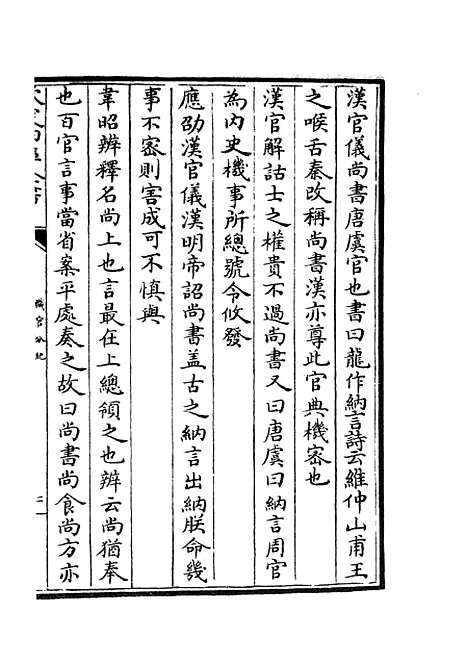 漢官儀尚書唐虞官也書曰龍作納言詩云維仲山甫王
之喉舌秦改稱尚書漢亦尊此官典機密也
漢官解詁士之權貴不過尚書又曰唐虞曰納言周官
為内史機事所總號令攸發
應劭漢官儀漢明帝詔尚書盖古之納言出納朕命幾
事不密則害成可不慎與
韋昭辨釋名尚上也言最在上總領之也辨云尚猶奉
也百官言事當省案平處奏之故曰尚書尚食尚方亦
職官分紀